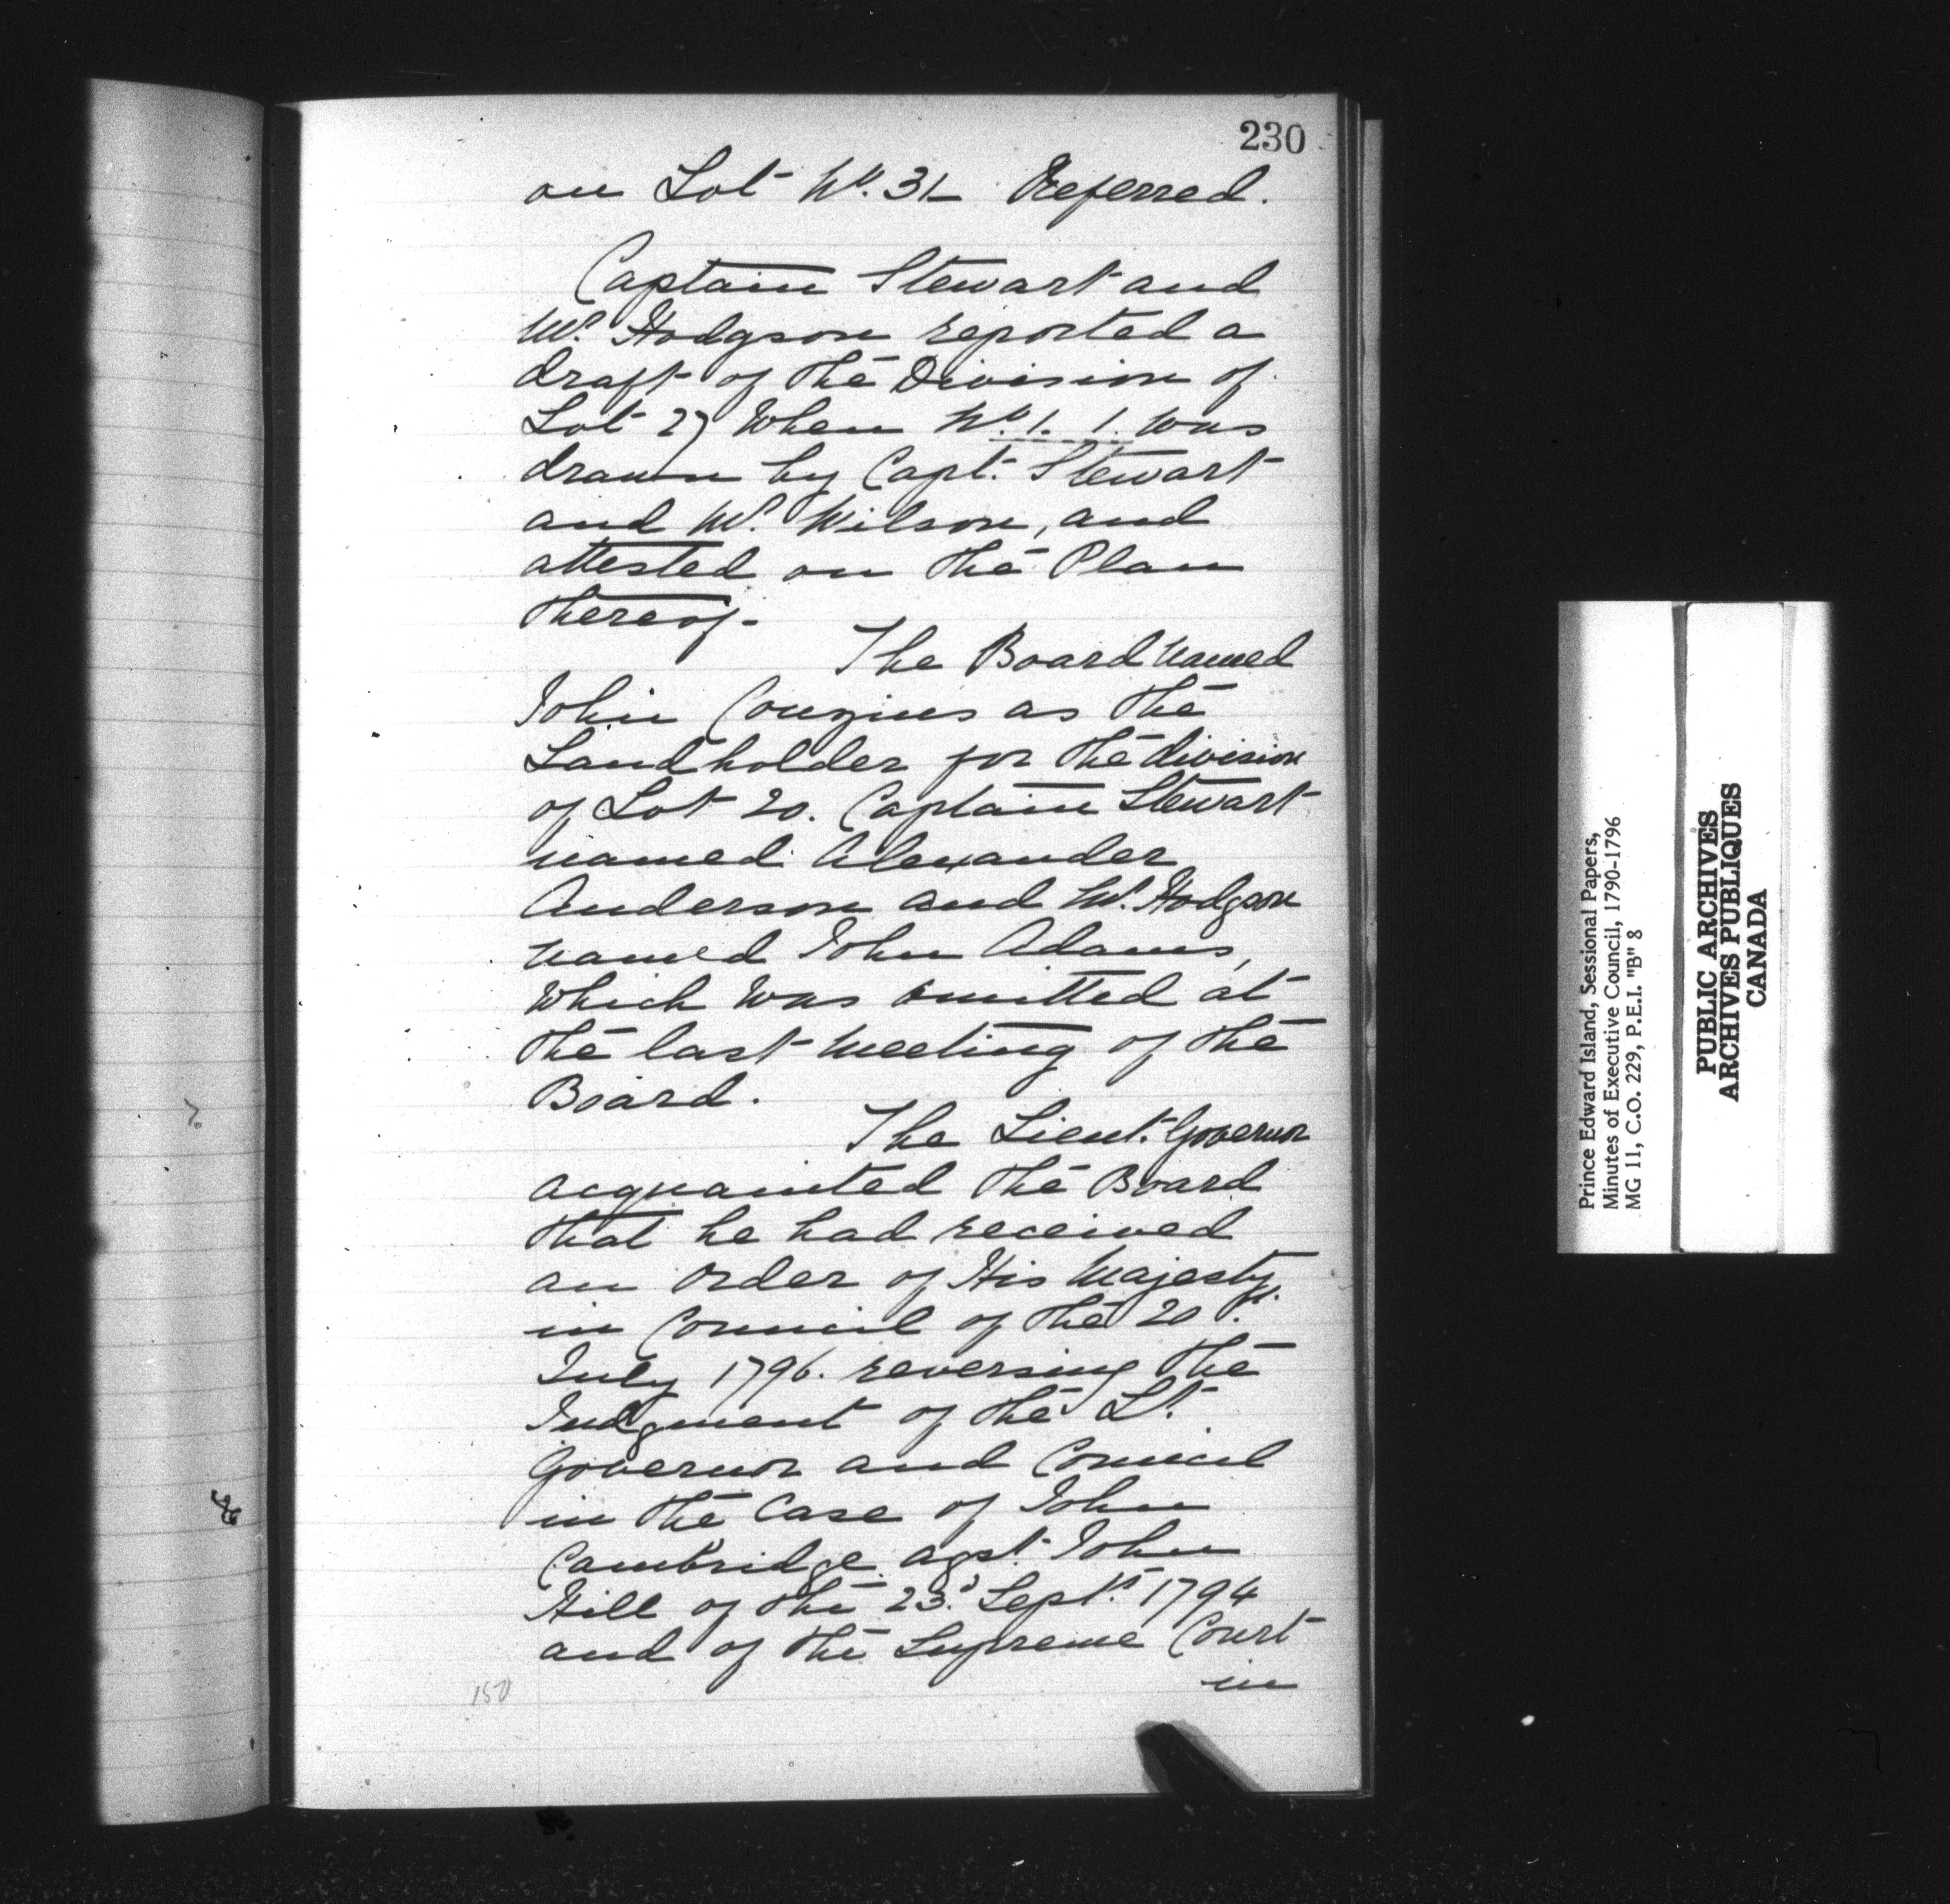 230
on Lot No. 31 Referred.
Captain Stewart and
Mr. Hodgson reported a
draft of the Division of
Lot 27 When No. 1. 1. was
drawn by Capt. Stewart
and Mr. Wilson, and
attested on the Plan
thereof.
The Board named
John Couzins as the
Landholder for the division
of Lot 20. Captain Stewart
named Alexander
Anderson and Mr. Hodgson
named John Adams,
which was omitted at
the last meeting of the
Board.
The Lieut. Governor
acquainted the Board
that he had received
an order of His Majesty
in Council of the 20th.
July 1796. reversing the
Judgment of the Lt.
Governor and Council
in the Case of John
Cambridge agst. John
Hill of the 23d. Septr. 1794
and of the Supreme Court
in
150
Prince Edward Island, Sessional Papers,
Minutes of Executive Council, 1790-1796
MG 11, C.O. 229, P.E.I. "B" 8
PUBLIC ARCHIVES
ARCHIVES PUBLIQUES
CANADA